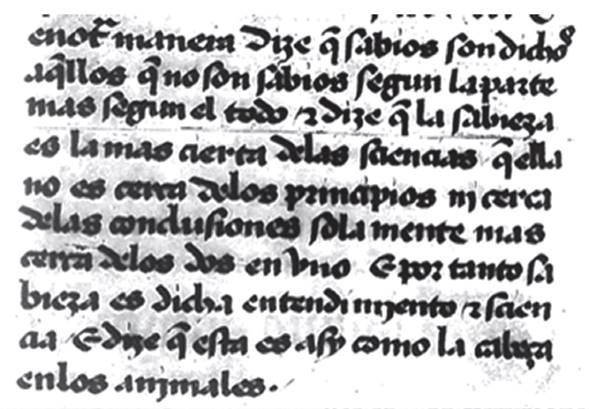 enotͣ manera Dize q̃ sabios son dichoꝰ
aq̃llos q̃ no son sabios segun la parte
mas segun el todo ⁊ dize q̃ la sabieza
es la mas cierta delas sciencias q̃ ella
no es cerca delos principios nj cerca
delas conclusiones sola mente mas
cerca delos dos en vno E por tanto sa
bieza es dicha entendimjento ⁊ scien
cia E dize q̃ esta es asy como la cabeça
enlos anjmales.